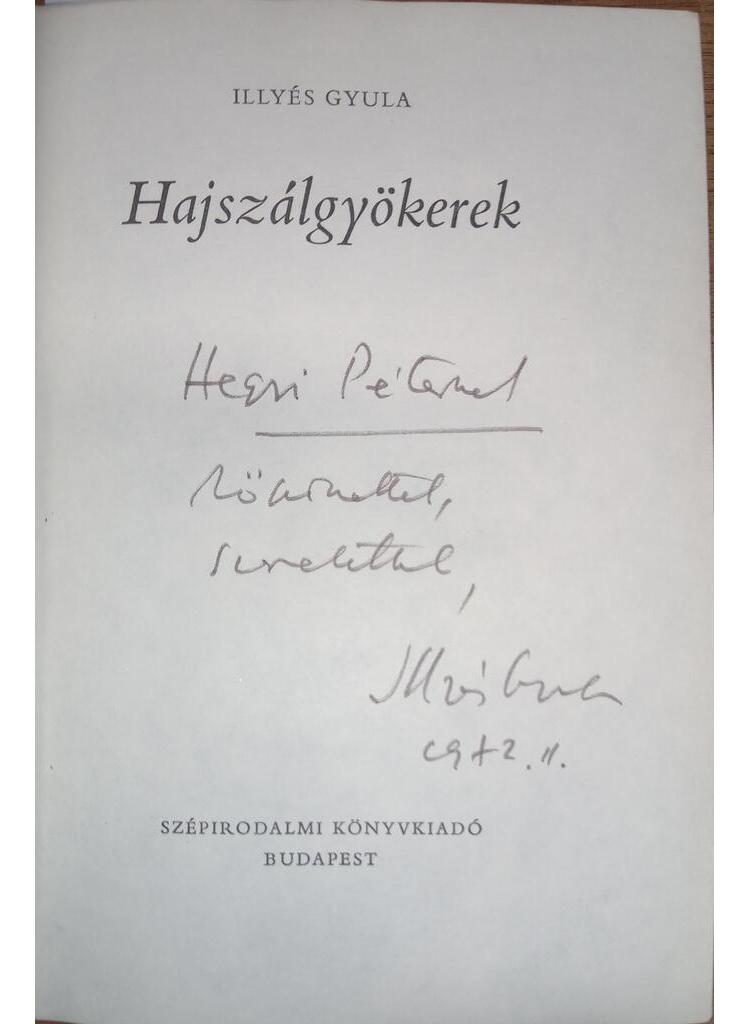 ILLYÉS GYULA
Hajszálgyökerek
Hegyi Péternek
köszönettel,
szeretettel,
Illyés Gyula
1972. II.
SZÉPIRODALMI KÖNYVKIADÓ
BUDAPEST